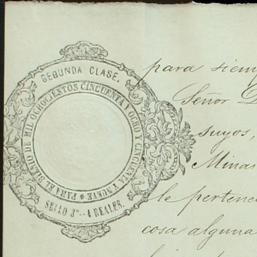 SEGUNDA CLASE.
PARA EL BIENIO DE MIL OCHOCIENTOS CINCUENTA Y OCHO Y CINCUENTA Y NUEVE
SELLO 3º 4 REALES.
para siem
Señor D
suyos,
Minas
le pertenec
cosa alguna